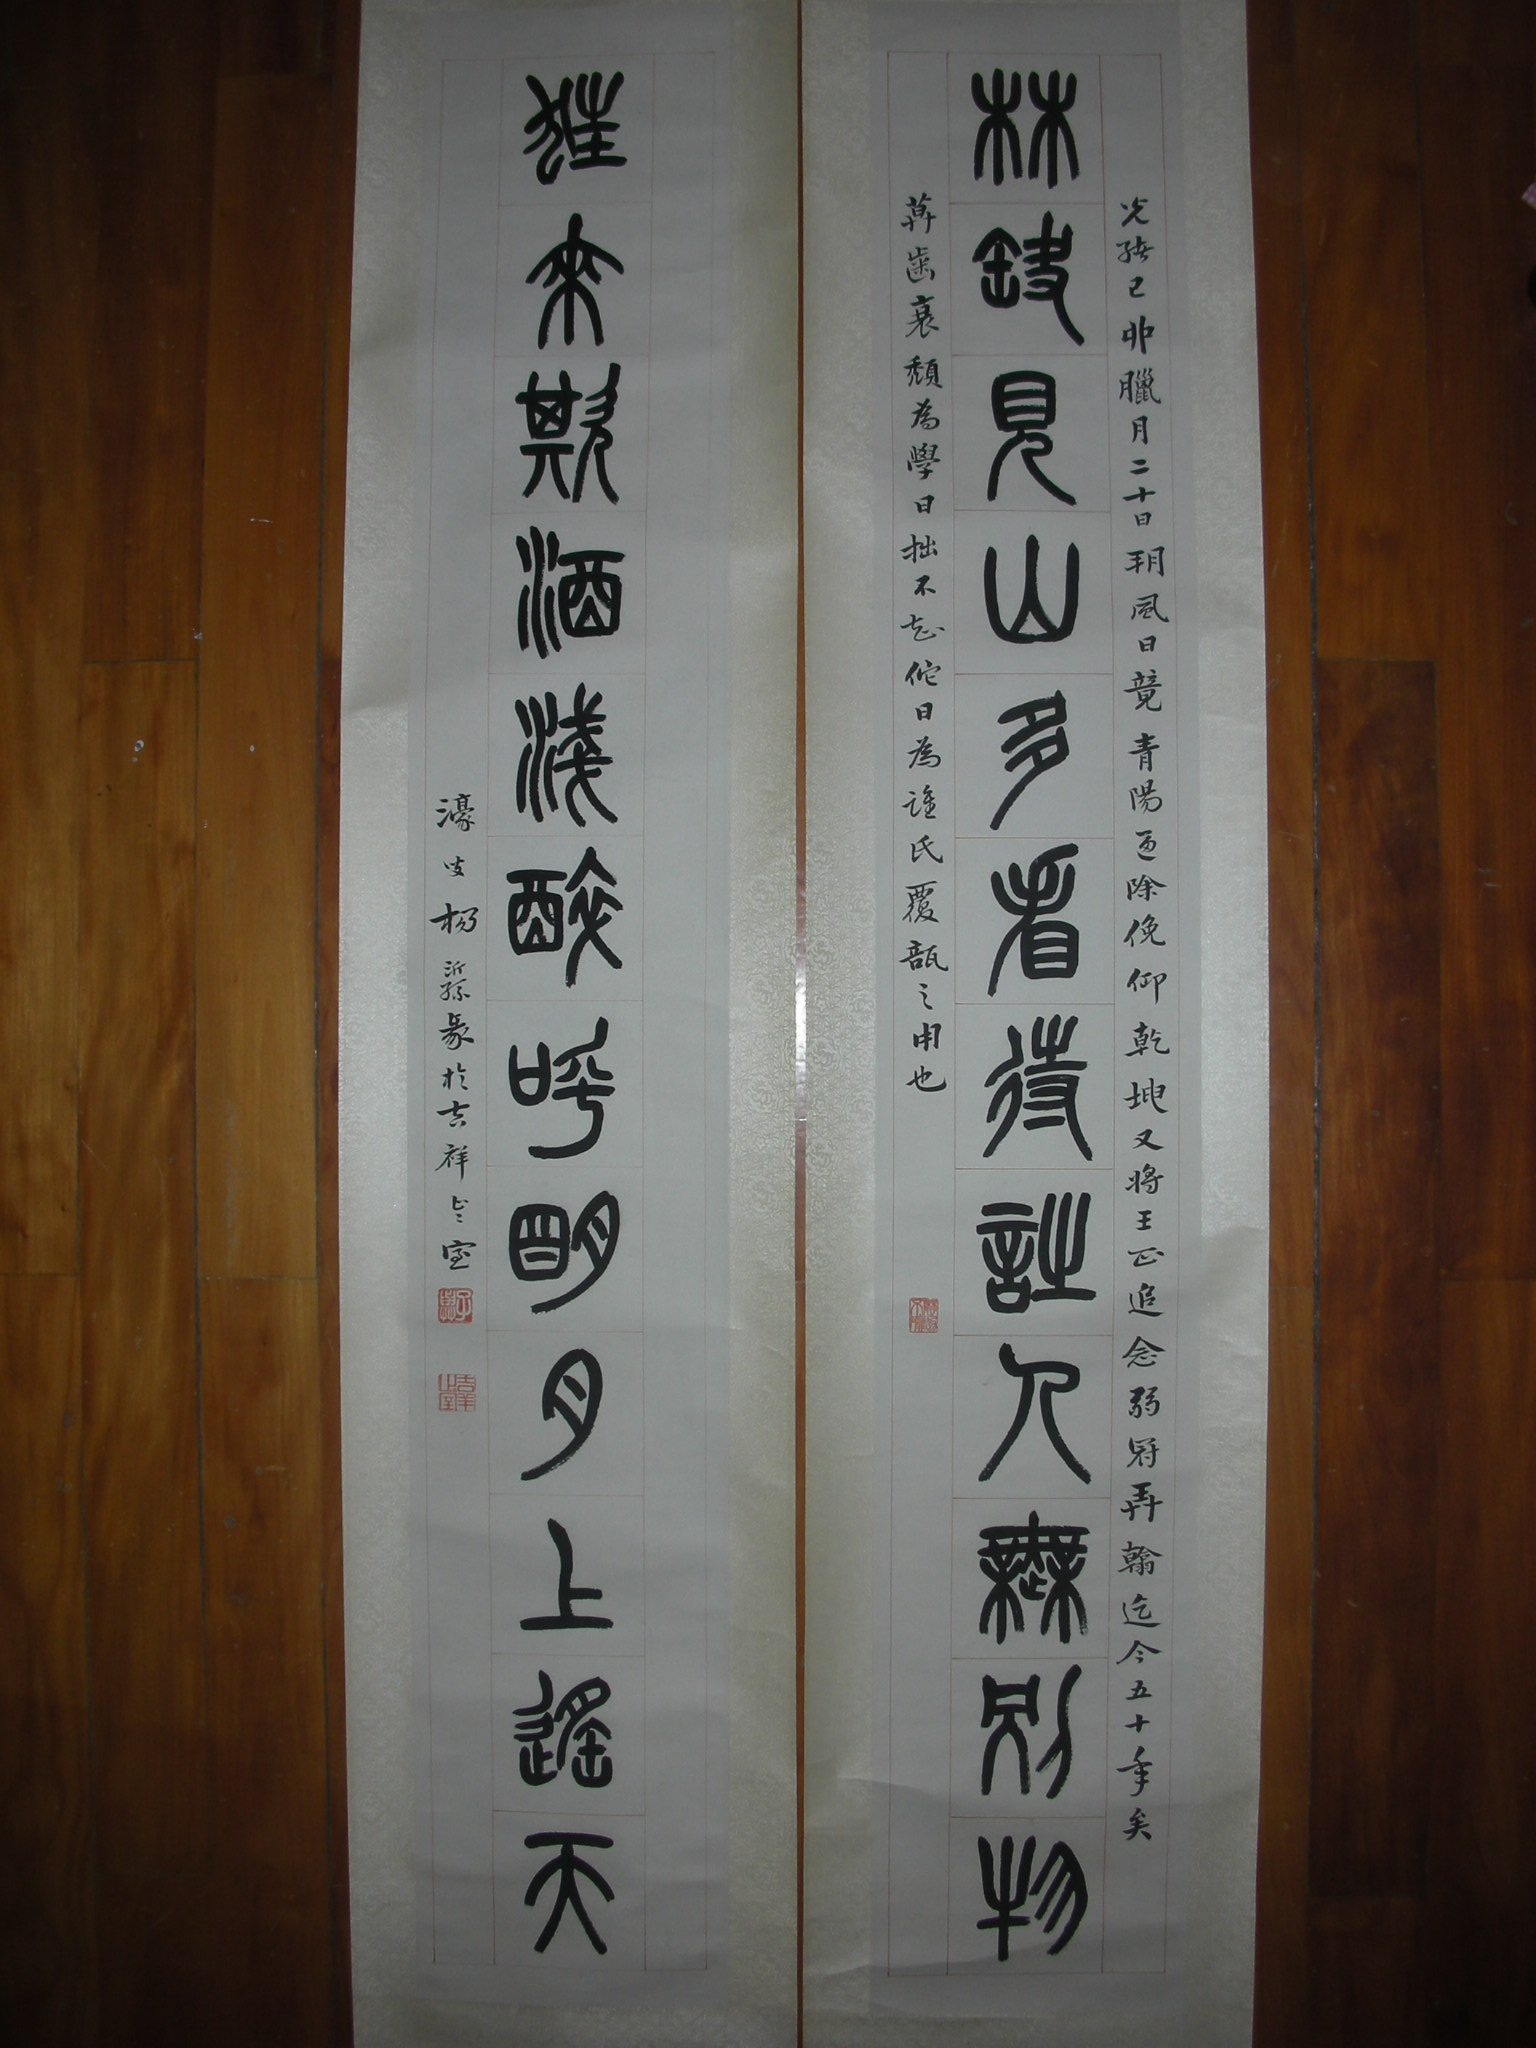 林缺見山多看待詿人無別物
光緒己卯臘月二十日玥風日競青陽逼除俛仰乾坤又將王正追念弱冠弄翰迄今五十年矣
齒衰頹為學日拙不知佗日為誰氏覆瓿之用也
狂來欺酒淺醉呼明月上遙天
濠叟楊沂孫篆於吉祥止止室